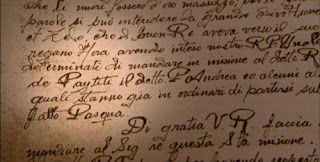 che li muri fossero d'oro massiggio, per
parole si può intendere la grande
et Zelo, che il buon Re aveva verso il suo
regano Hora avendo inteso nostro R. P.
determinato di mandare in misione al detto R
de Paytiti il detto P. Andrea ed alcuni al
quali stanno gia in ordinari di partersi su
fatto Pasqua.
Di gratia V. R. faccia
mandare al Sig re questa Sta misione.